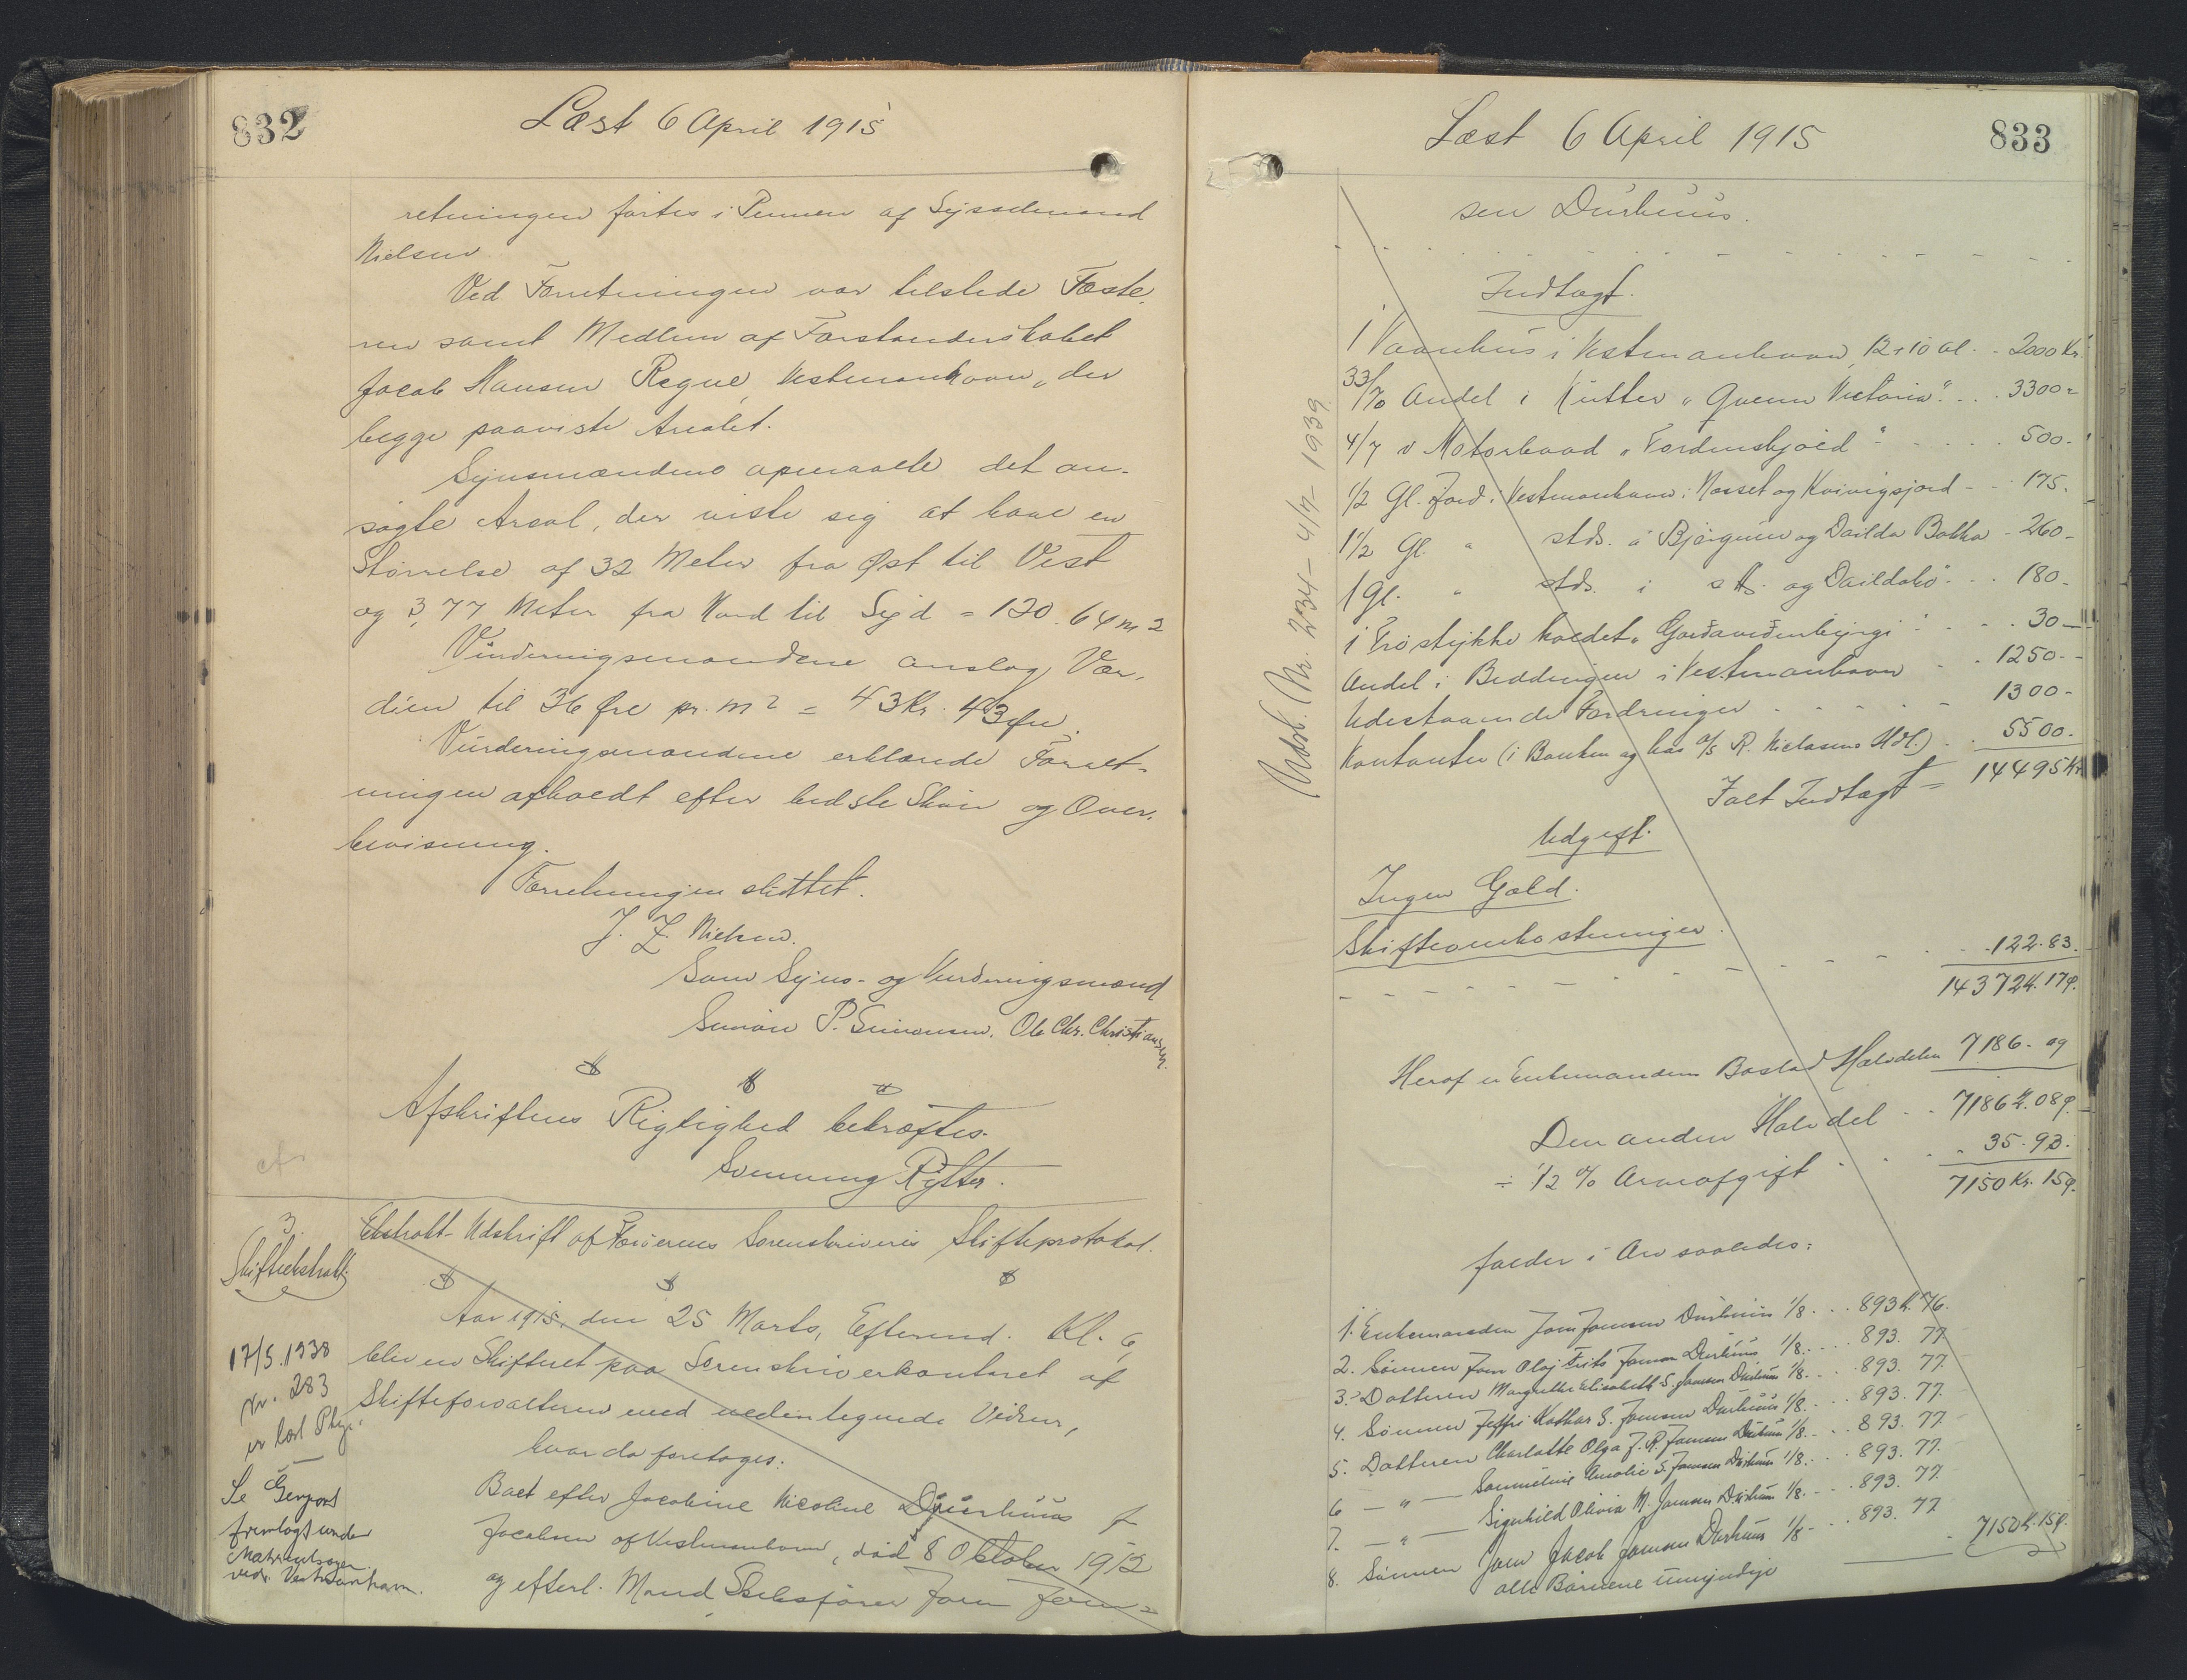 832
Læst 6 April 1915
retningen førtes i Pennen af Sysselmand
Nielsen.
Ved Forretningen var tilstede Fæste-
ren samt Medlem af Forstanderskabet
Jacob Hansen Regne, Vestmanhavn, der
begge paaviste Arealet.
Synsmændene opmaalte det an-
søgte Areal, der viste sig at have en
Størrelse af 32 Meter fra Øst til Vest
og 3,77 Meter fra Nord til Syd = 120.64 m2
Vurderingsmændene anslog Vær-
dien til 36 Øre pr. m2 = 43 Kr. 43 Øre.
Vurderingsmændene erklærede Forret-
ningen afholdt efter bedste Skøn og Over-
bevisning.
Forretningen sluttet.
J. Z. Nielsen.
Som Syns- og Vurderingsmænd
Simon P. Simonsen. Ole Chr. Christiansen.
Afskriftens Rigtighed bekræftes.
Svenning Rytter.
3.
Skifteekstrakt.
Ekstrakt-Udskrift af Færøernes Sorenskriveris Skifteprotokol.
Aar 1915, den 25 Marts, Eftermd. Kl. 6,
blev en Skifteret paa Sorenskriverkontoret af
Skifteforvalteren med nedentegnede Vidner,
hvor da foretoges:
Boet efter Jacobine Nicoline Duurhuus f.
Jacobsen af Vestmanhavn, død 8 Oktober 1912
og efterl. Mand Skibsfører Joen Joen-
17/5.1938
Nr. 283
er læst
Se Genpart
fremlagt under
Matrikelsagen
vedr. Vestmanhavn.
833
Læst 6 April 1915
sen Duurhuus.
Indtægt.
1 Vaanhus i Vestmanhavn, 12 x 10 al. - 2000 Kr.
33/70 Andel i Kutter "Queen Victoria". . . 3300 -
4/7 i Motorbaad "Tordenskjold" . . . 500 -
1/2 Gl. Jord i Vestmanhavn i Nesset og Kvivigsjord - - 175.
1 1/2 Gl. " stds. á Bjørgum og Dailda Bakka - 260 -
1 Gl. " stds. i og - - 180 -
1 Trøstykke kaldet " . . 30 -
Andel i Beddingen i Vestmanhavn - . 1250 -
Udestaaende Fordringer . . . 1300 -
Kontanter (i Banken og hos A/S R. Niclasens Hdl.) . . 5500 -
Ialt Indtægt = 14495 Kr.
Udgift.
Ingen Gæld.
Skifteomkostninger . . . 122.83.
14372 K. 17 Ø.
Heraf er Enkemandens Boslod Halvdelen 7186. 09
Den anden Halvdel . . 7186 K. 08 Ø.
÷ 1/2 % Arveafgift . . . 35.93.
7150 Kr. 15 Ø.
falder i Arv saaledes:
1. Enkemanden Joen Joensen Duurhuus 1/8 . . . 893 K. 76.
2. Sønnen Joen Olaj Frits Joensen Duurhuus 1/8 . . . 893. 77.
3. Datteren Margrethe Elisabeth S. Joensen Duurhuus 1/8 . . . 893. 77.
4. Sønnen Jeffri Kathar S. Joensen Duurhuus 1/8 . . . 893. 77.
5. Datteren Charlotte Olga J. R. Joensen Duurhuus 1/8 . . . 893. 77.
6 — " — Sanneline Amalie S. Joensen Duurhuus 1/8 . . . 893. 77.
7. — " — Sigerhild Olivia M. Joensen Duurhuus 1/8 . . . 893. 77.
8. Sønnen Joen Jacob Joensen Duurhuus 1/8 - . . . 893. 77
7150 K. 15 Ø.
alle Børnene umyndige
Udsl. Nr. 234 - 4/7 - 1939